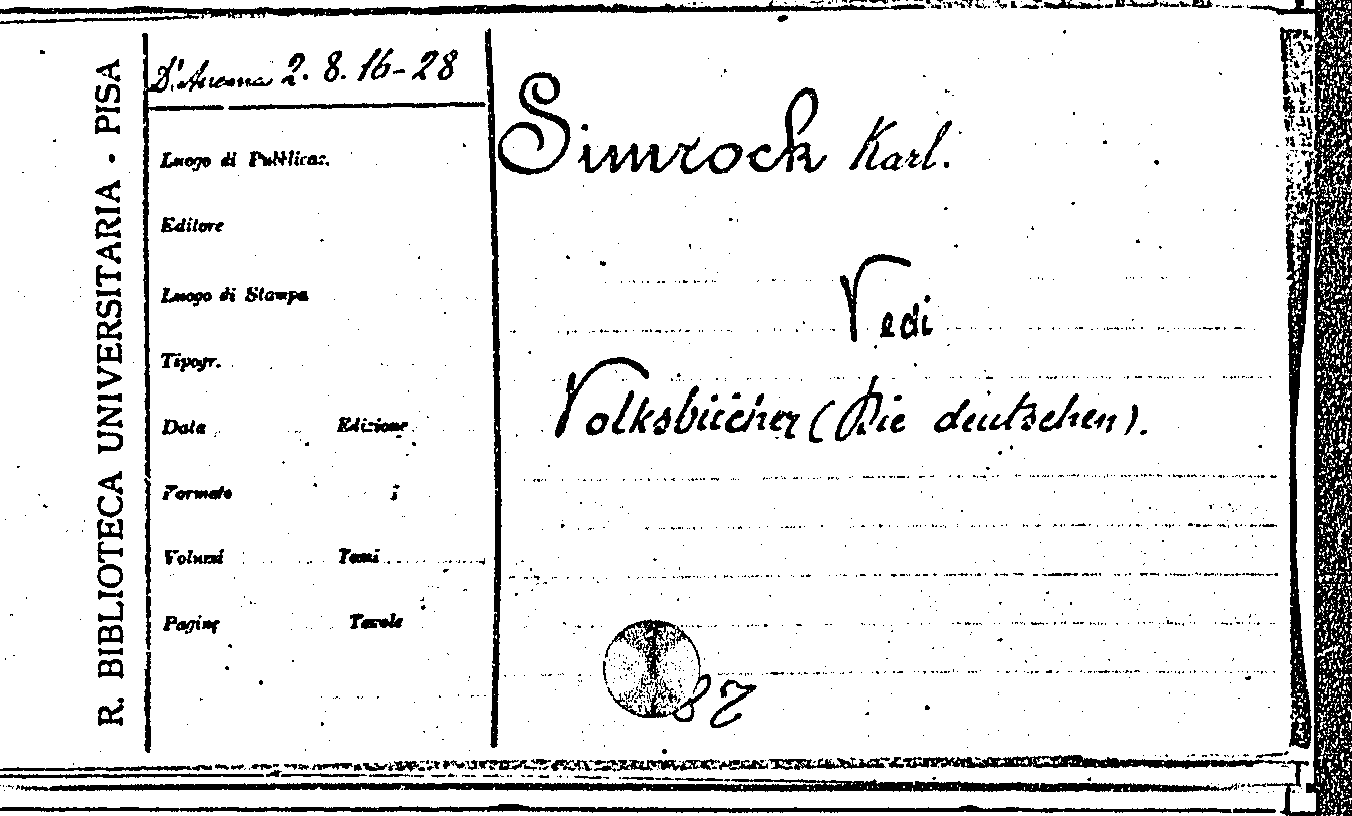 R. BIBLIOTECA UNIVERSITARIA · PISA
D'Ancona 2. 8. 16-28
Luogo di Pubblicaz.
Editore
Luogo di Stampa
Tipogr.
Data Edizione
Formato
Volumi Tomi
Pagine Tavole
Simrock Karl.
Vedi
Volksbücher (Die deutschen).